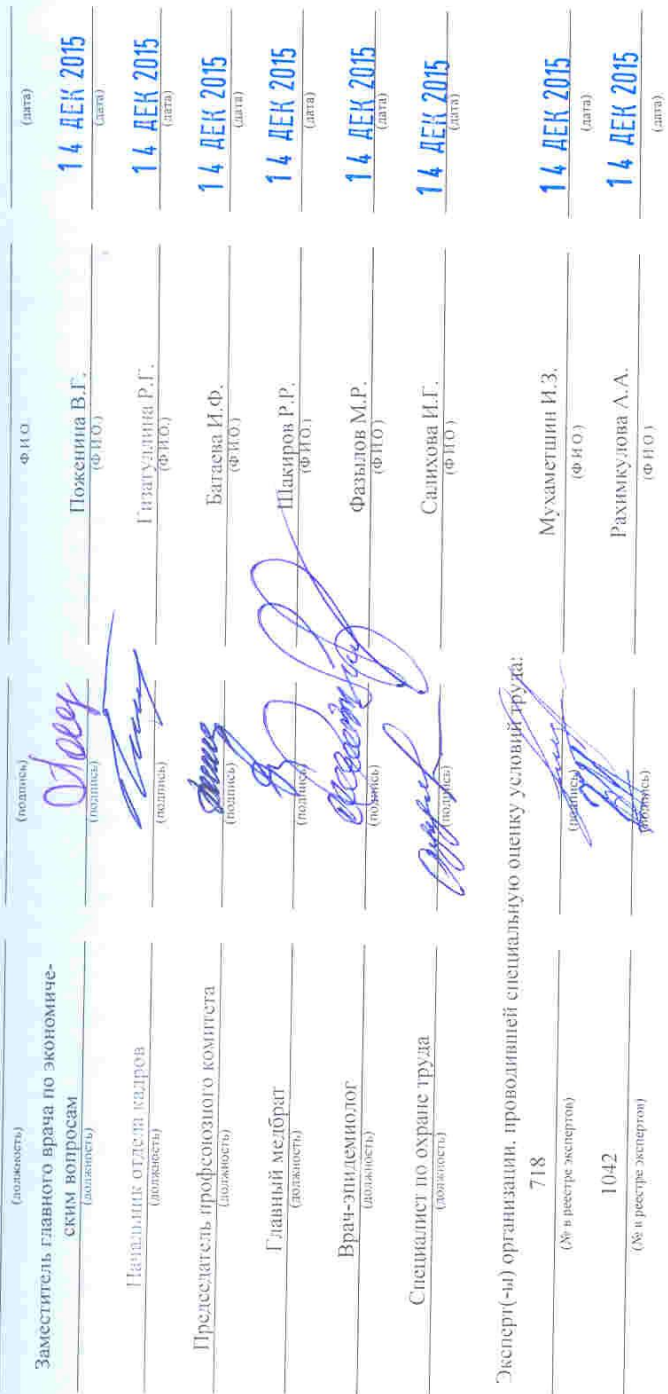 (должность) (подпись) Ф.И.О. (дата)
Заместитель главного врача по экономиче-
ским вопросам Поженина В.Г. 14 ДЕК 2015
(должность) (подпись) (Ф.И.О.) (дата)
Начальник отдела кадров Гизатуллина Р.Г. 14 ДЕК 2015
(должность) (подпись) (Ф.И.О.) (дата)
Председатель профсоюзного комитета Батаева И.Ф. 14 ДЕК 2015
(должность) (подпись) (Ф.И.О.) (дата)
Главный медбрат Шакиров Р.Р. 14 ДЕК 2015
(должность) (подпись) (Ф.И.О.) (дата)
Врач-эпидемиолог Фазылов М.Р. 14 ДЕК 2015
(должность) (подпись) (Ф.И.О.) (дата)
Специалист по охране труда Салихова И.Г. 14 ДЕК 2015
(должность) (подпись) (Ф.И.О.) (дата)
Эксперт(-ы) организации, проводившей специальную оценку условий труда:
718 Мухаметшин И.З. 14 ДЕК 2015
(№ в реестре экспертов) (подпись) (Ф.И.О.) (дата)
1042 Рахимкулова А.А. 14 ДЕК 2015
(№ в реестре экспертов) (подпись) (Ф.И.О.) (дата)